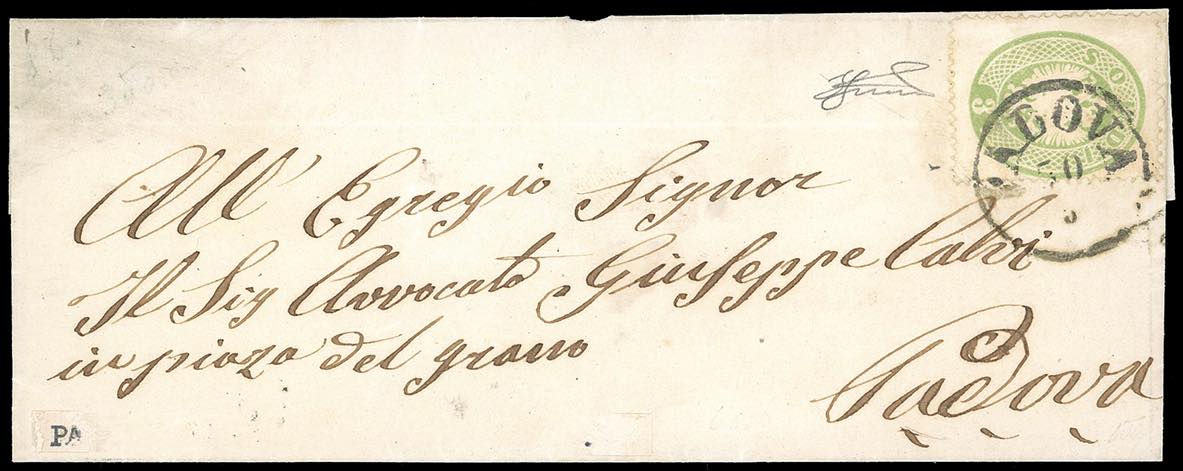 3 SOLDI
PADOVA
All' Egregio Signor
Il Sig Avvocato Giuseppe Calvi
in piaza del grano
Padova
PA